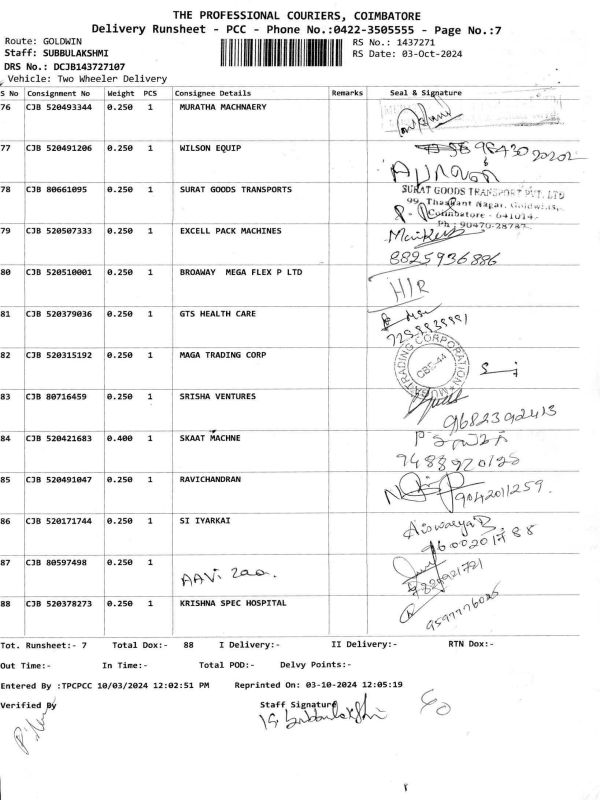 THE PROFESSIONAL COURIERS, COIMBATORE
Delivery Runsheet - PCC - Phone No.:0422-3505555 - Page No.:7
Route: GOLDWIN RS No.: 1437271
Staff: SUBBULAKSHMI RS Date: 03-Oct-2024
DRS No.: DCJB143727107
Vehicle: Two Wheeler Delivery
S No Consignment No Weight PCS Consignee Details Remarks Seal & Signature
76 CJB 520493344 0.250 1 MURATHA MACHNAERY
77 CJB 520491206 0.250 1 WILSON EQUIP
78 CJB 80661095 0.250 1 SURAT GOODS TRANSPORTS SURAT GOODS TRANSPORT PVT. LTD
99, Thaspant Nagar, Goldwins,
Coimbatore - 641014
Ph : 90470-28787
79 CJB 520507333 0.250 1 EXCELL PACK MACHINES
8825936886
80 CJB 520510001 0.250 1 BROAWAY MEGA FLEX P LTD H/R
81 CJB 520379036 0.250 1 GTS HEALTH CARE
82 CJB 520315192 0.250 1 MAGA TRADING CORP TRADING CORPORATION CBE-44
83 CJB 80716459 0.250 1 SRISHA VENTURES
9682392413
84 CJB 520421683 0.400 1 SKAAT MACHNE
85 CJB 520491047 0.250 1 RAVICHANDRAN 9042011259.
86 CJB 520171744 0.250 1 SI IYARKAI Aiswarya B
9600201788
87 CJB 80597498 0.250 1
AAVi Zoo.
88 CJB 520378273 0.250 1 KRISHNA SPEC HOSPITAL
Tot. Runsheet:- 7 Total Dox:- 88 I Delivery:- II Delivery:- RTN Dox:-
Out Time:- In Time:- Total POD:- Delvy Points:-
Entered By :TPCPCC 10/03/2024 12:02:51 PM Reprinted On: 03-10-2024 12:05:19
Verified By Staff Signature